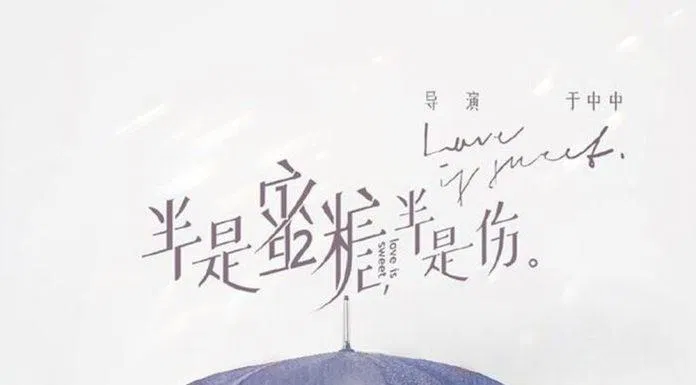 导演 于中中
Love
is sweet.
半是蜜糖,半是伤。
2
love is
sweet